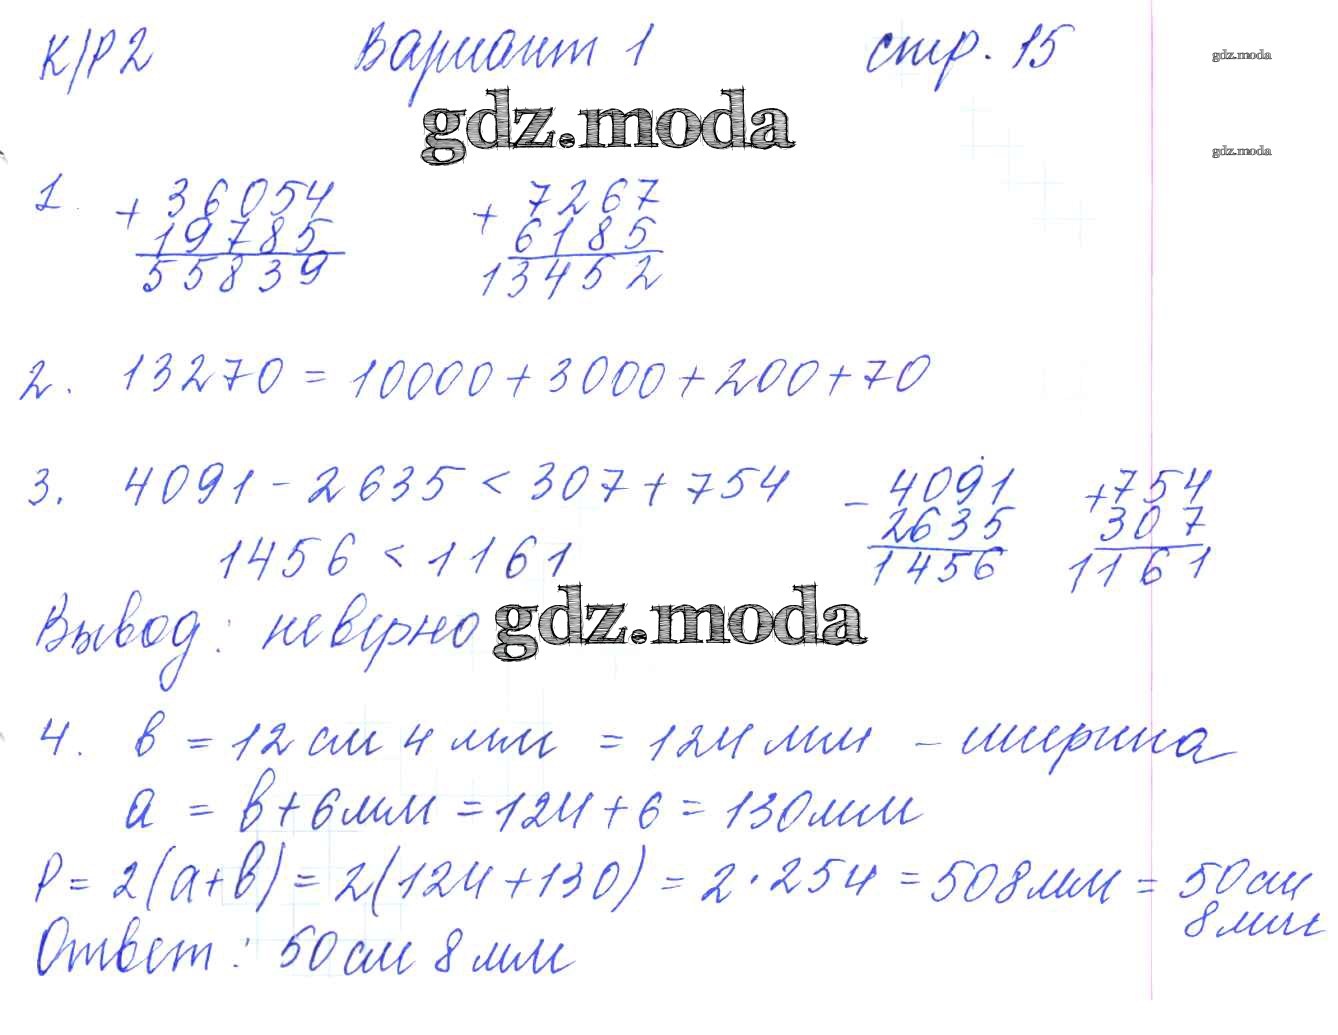 К/Р 2 Вариант 1 стр. 15
gdz.moda
gdz.moda
gdz.moda
1. + 36054 + 7267
19785 6185
55839 13452
2. 13270 = 10000 + 3000 + 200 + 70
3. 4091 - 2635 < 307 + 754 - 4091 + 754
2635 307
1456 < 1161 1456 1161
Вывод: неверно
gdz.moda
4. в = 12 см 4 мм = 124 мм - ширина
а = в + 6 мм = 124 + 6 = 130 мм
Р = 2(а+в) = 2(124 + 130) = 2 · 254 = 508 мм = 50 см
8 мм
Ответ: 50 см 8 мм